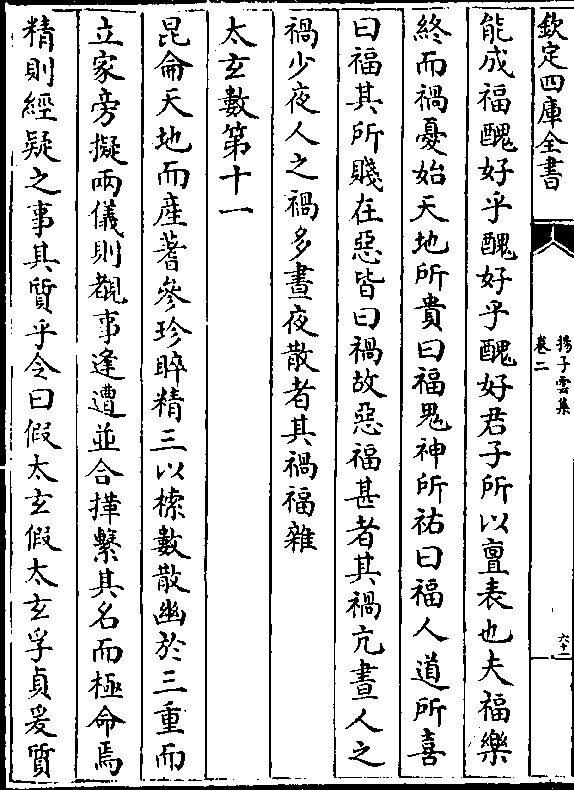 欽定四庫全書
揚子雲集
卷二
六十二
能成福醜好乎醜好乎醜好君子所以亶表也夫福樂
終而禍憂始天地所貴曰福鬼神所祐曰福人道所喜
曰福其所賤在惡皆曰禍故惡福甚者其禍亢晝人之
禍少夜人之禍多晝夜散者其禍福雜
太玄數第十一
昆侖天地而産蓍參珍睟精三以㩲數散幽於三重而
立家旁擬兩儀則覩事逢遭並合揮繫其名而極命焉
精則經疑之事其質乎令曰假太玄假太玄孚貞爰質